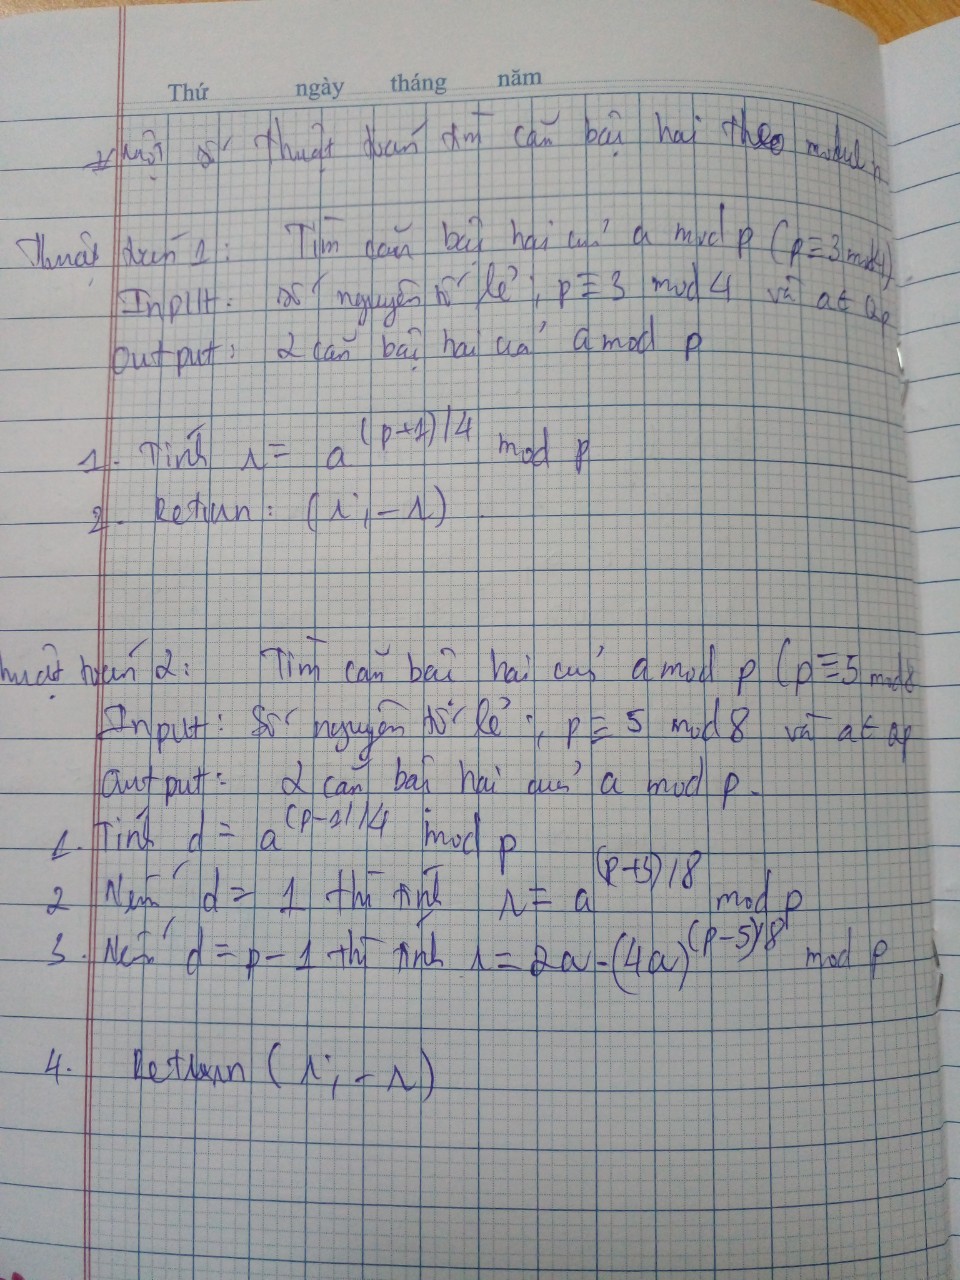 Thứ ngày tháng năm
* Một số thuật toán tìm căn bậc hai theo modul n
Thuật toán 1: Tìm căn bậc hai của a mod p (p ≡ 3 mod 4)
Input: Số nguyên tố lẻ; p ≡ 3 mod 4 và a ∈ Qp
Output: 2 căn bậc hai của a mod p
1. Tính r = a^(p+1)/4 mod p
2. Return: (r; -r)
Thuật toán 2: Tìm căn bậc hai của a mod p (p ≡ 5 mod 8
Input: Số nguyên tố lẻ; p ≡ 5 mod 8 và a ∈ Qp
Output: 2 căn bậc hai của a mod p.
1. Tính d = a^(p-1)/4 mod p
2 Nếu d = 1 thì tính r = a^(p+3)/8 mod p
3. Nếu d = p-1 thì tính r = 2a-(4a)^(p-5)/8 mod p
4. Return (r; -r)